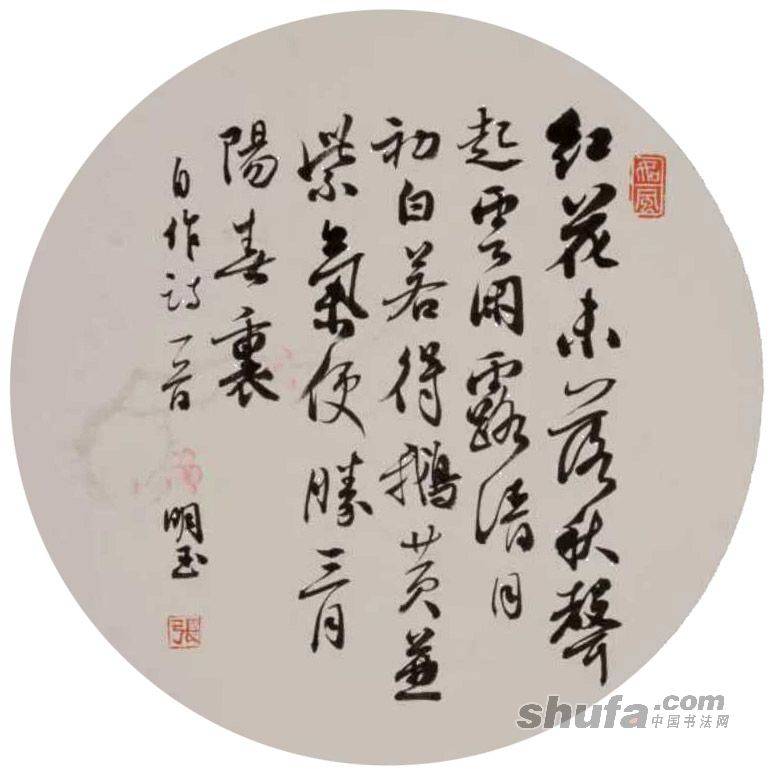 紅花未落秋聲
起雲閑露清月
初白若得鵝黄並
紫氣便勝三月
陽春裏
自作詩一首 明玉
張
shufa.com
中国书法网